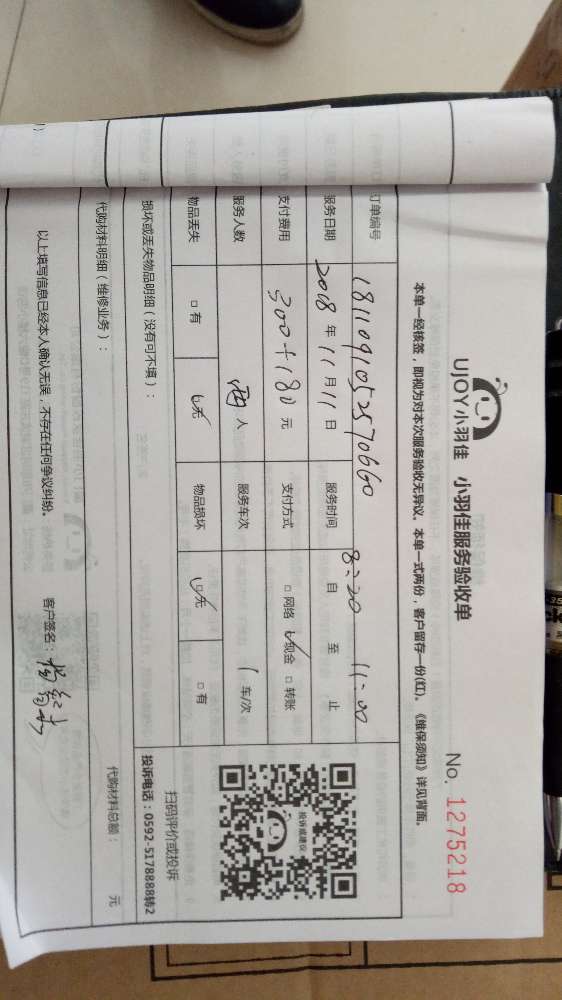 UJOY小羽佳 小羽佳服务验收单
No. 1275218
本单一经核签，即视为对本次服务验收无异议。本单一式两份，客户留存一份(红)。《维保须知》详见背面。
订单编号
服务日期 2018 年 11 月 11 日 服务时间 8:20 自 至 11:00 止
支付费用 300+180 元 支付方式 □ 网络 ☑ 现金 □ 转账
服务人数 两 人 服务车次 1 车/次
物品丢失 □ 有 ☑ 无 物品损坏 ☑ 无 □ 有
投诉或建议
扫码评价或投诉
投诉电话：0592-5178888转2
损坏或丢失物品明细（没有可不填）：
代购材料明细（维修业务）：
代购材料总额： 元
以上填写信息已经本人确认无误，不存在任何争议纠纷。 客户签名：